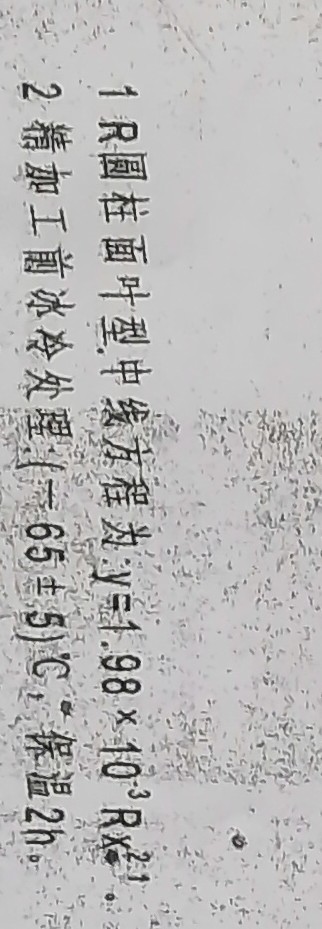 1 R圆柱面叶型中线方程为:y=1.98×10⁻³Rx²·¹。
2 精加工前冰冷处理:(-65±5)℃,保温2h。